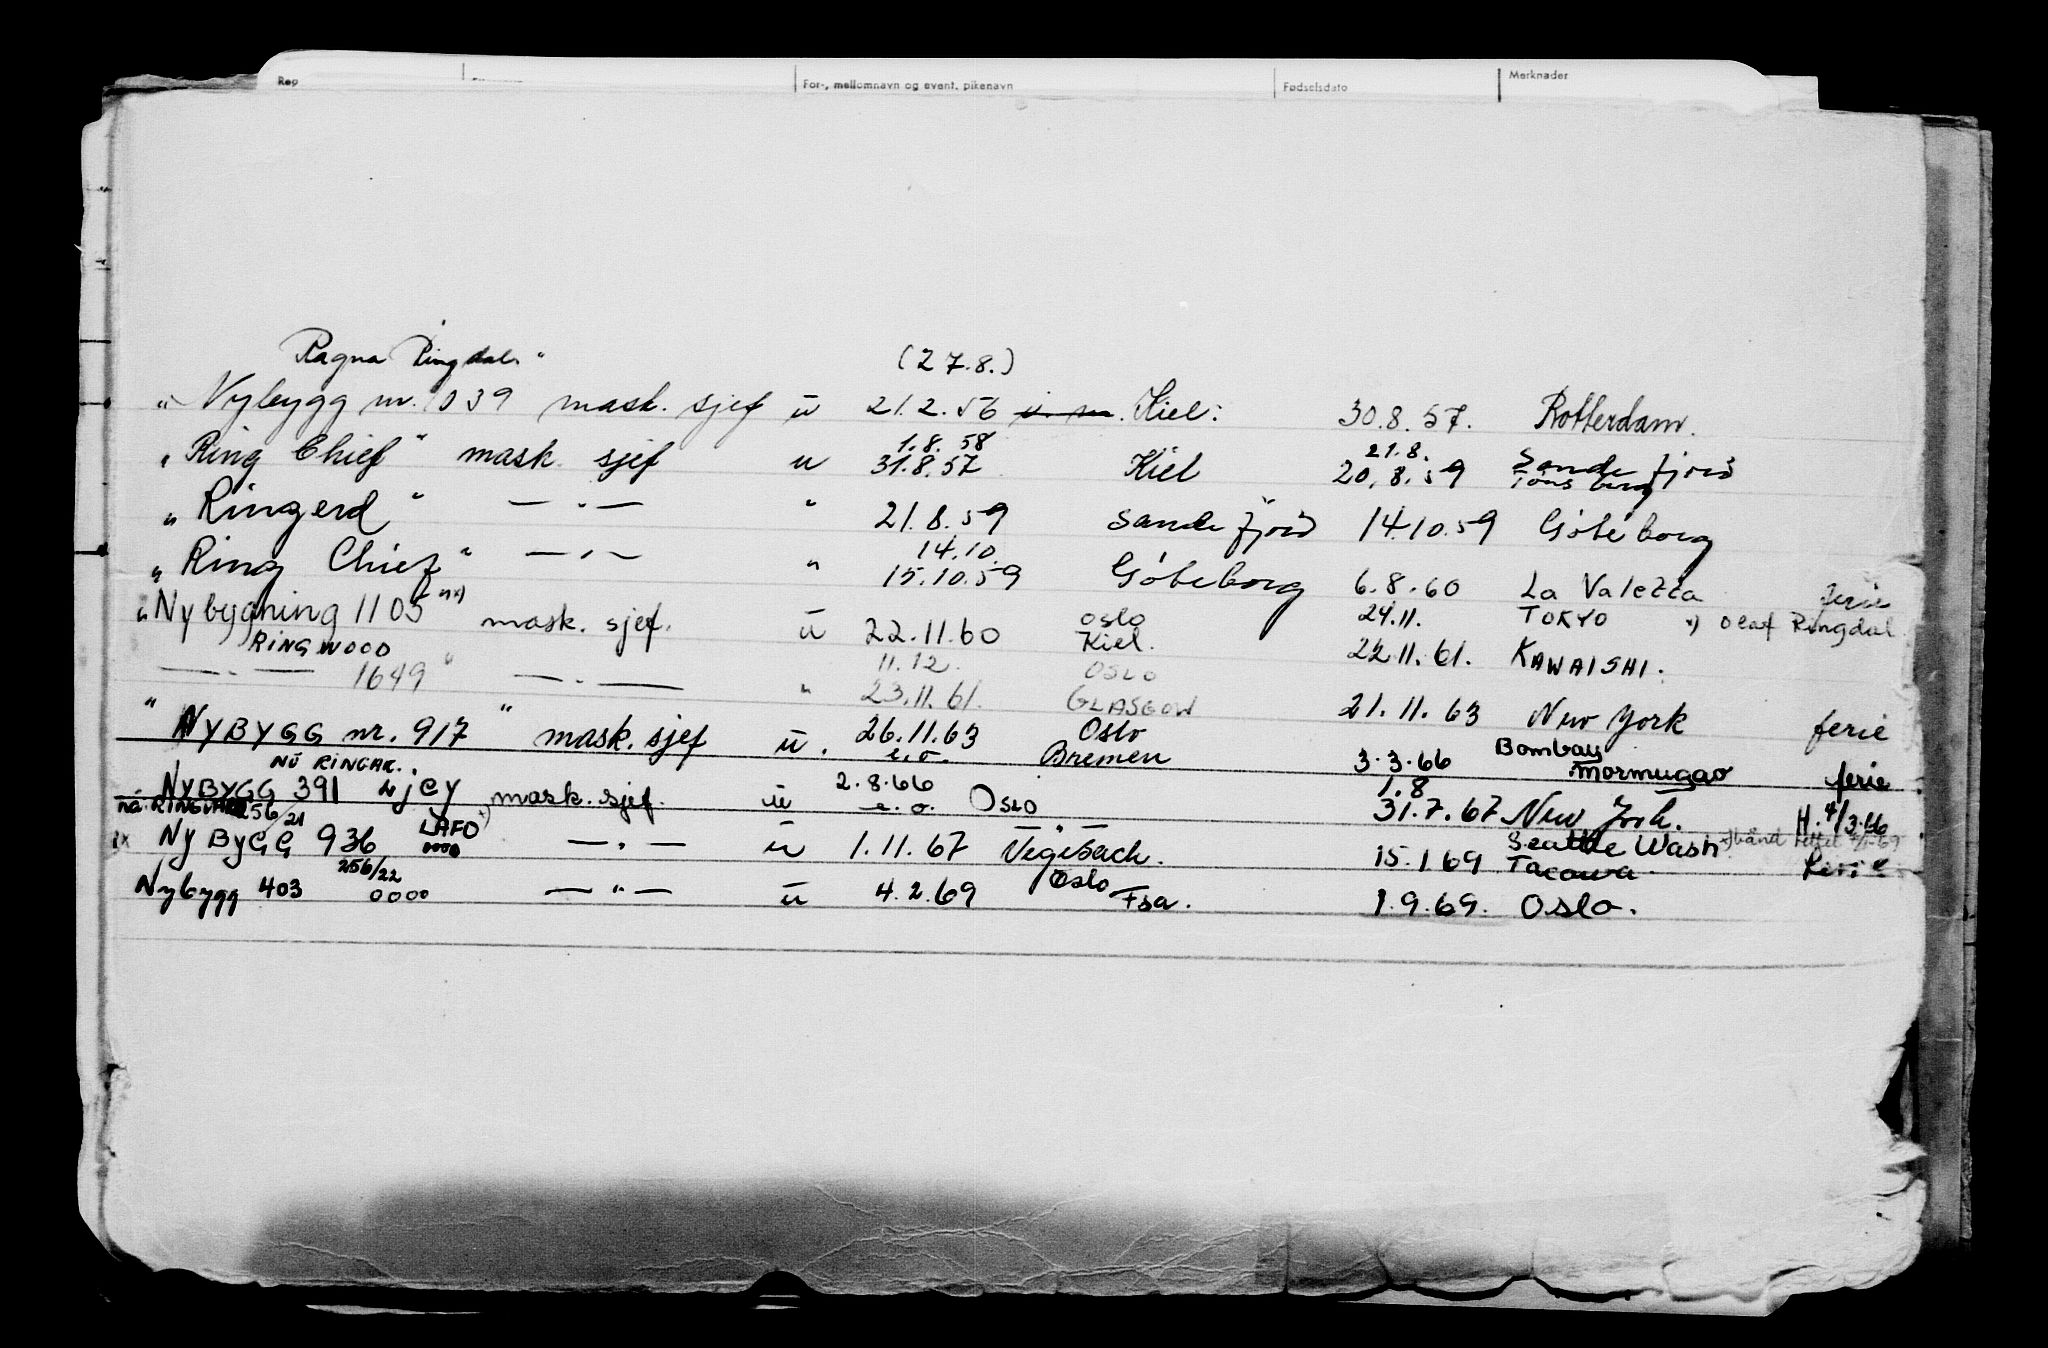 Reg For-, mellomnavn og event. pikenavn Fødselsdato Merknader
Ragna Ringdal" (27.8.)
" Nybygg nr. 1039 mask. sjef u 21.2.56 Kiel: 30.8.57. Rotterdam.
1.8.58 21.8. Sandefjord
"Ring Chief" mask. sjef u 31.8.57 Kiel 20.8.59 Tønsberg
"Ringerd" — " — " 21.8.59 Sandefjord 14.10.59 Göteborg
14.10.
"Ring Chief" — " — " 15.10.59 Göteborg 6.8.60 La Valetta ferie
Oslo 24.11. TOKYO x) Olaf Ringdal
"Nybygning 1105" x) mask. sjef. u 22.11.60 Kiel. 22.11.61. KAWAISHI.
RINGWOOD 11.12. OSLO
— " — 1649 " — " — " 23.11.61. GLASGOW 21.11.63 New York ferie
" NYBYGG nr. 917 " mask. sjef u. 26.11.63 Oslo Bombay
e.o. Bremen 3.3.66 Mormugao ferie
NÚ RINGAR. 2.8.66 1.8
NYBYGG 391 LJEY mask. sjef. u e.o. Oslo 31.7.67 New York. H. 4/3.66
nå 256/21 LAFO x) Seattle Wash
NYBYGG 936 oooo — " — u 1.11.67 Vegesach. 15.1.69 Tacowa. ferie
256/22 Oslo
Nybygg 403 oooo — " — u 4.2.69 Fsa. 1.9.69. Oslo.